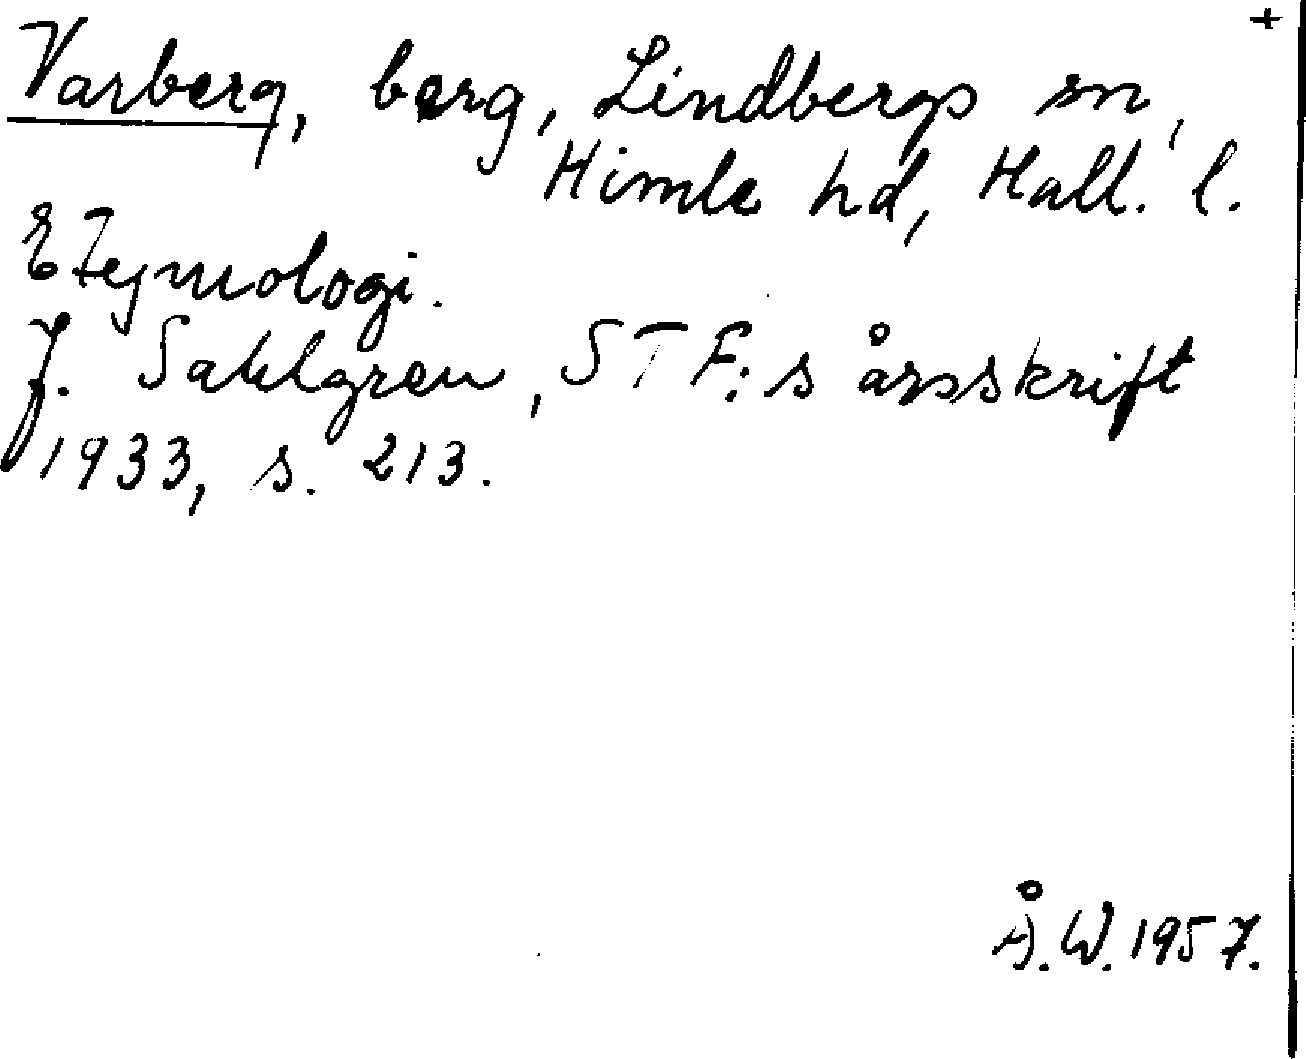 +
Varberg, berg, Lindbergs sn,
Himle hd, Hall. l.
Etymologi.
J. Sahlgren, STF:s årsskrift
1933, s. 213.
Å.W. 1957.